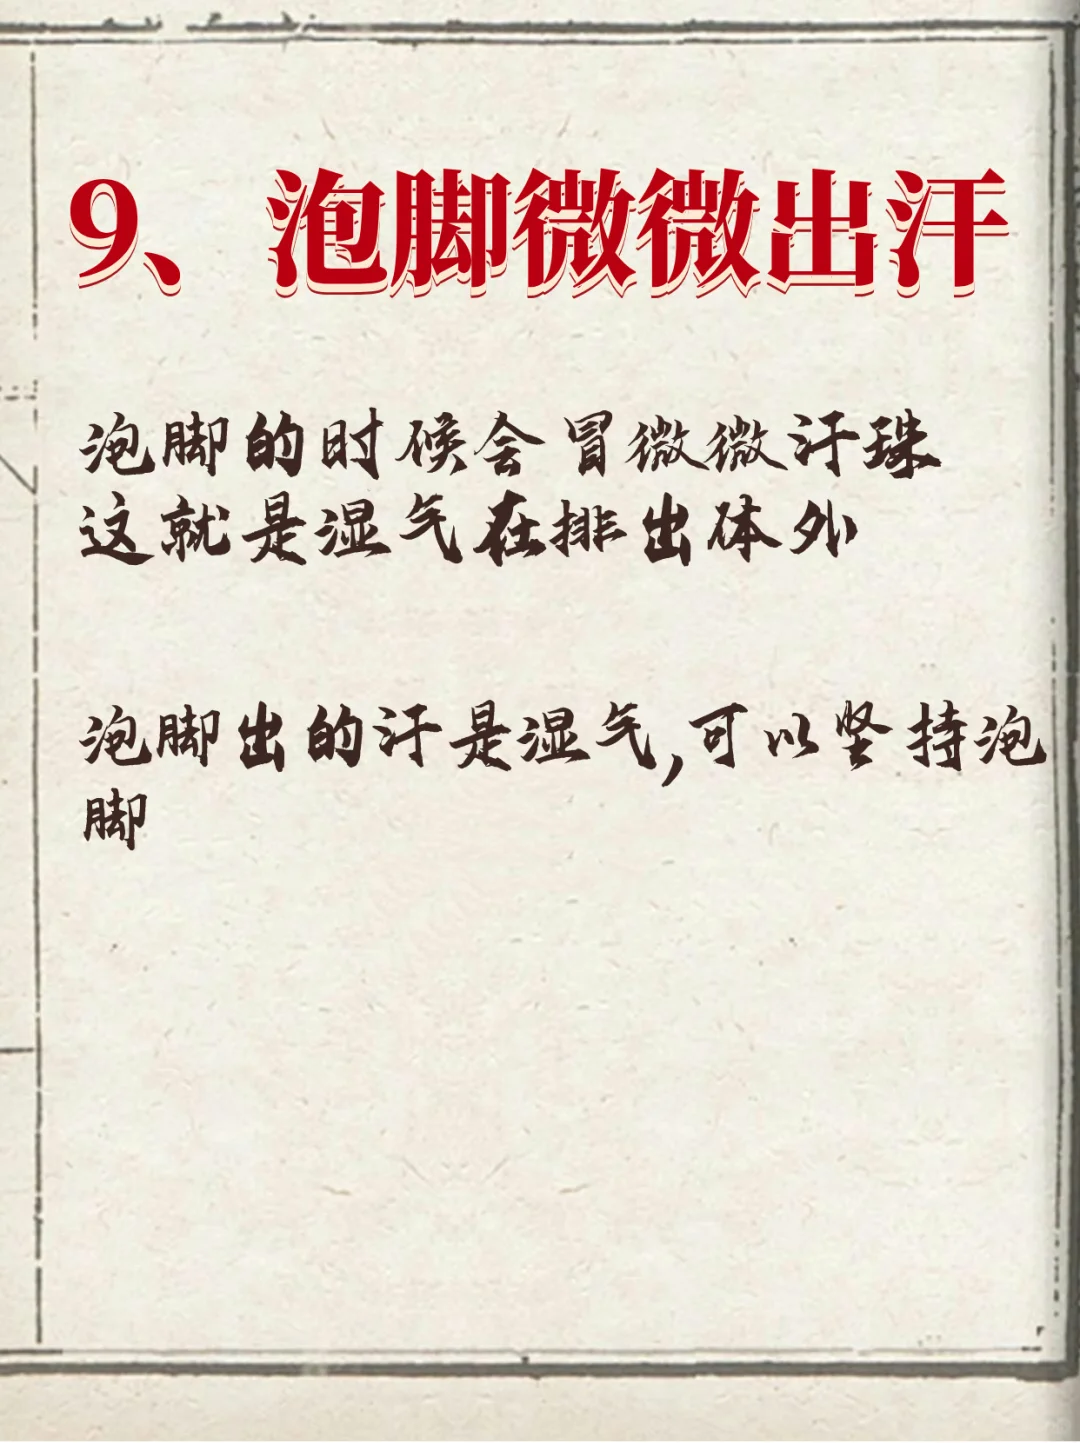 9、泡脚微微出汗
泡脚的时候会冒微微汗珠
这就是湿气在排出体外
泡脚出的汗是湿气,可以坚持泡
脚